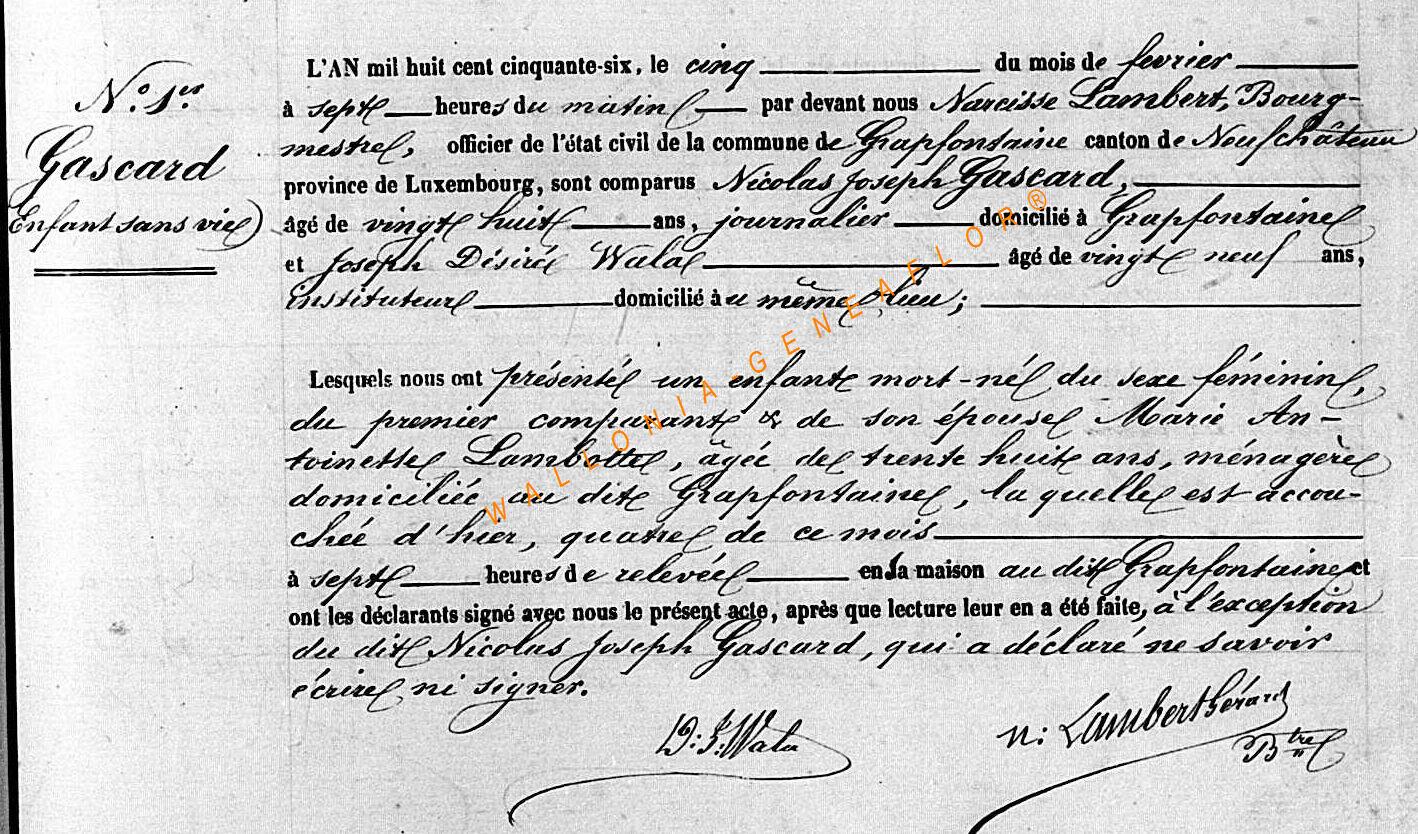 N.° 1.er
Gascard
(Enfant sans vie)
L'AN mil huit cent cinquante-six, le cinq du mois de fevrier
à sept heures du matin par devant nous Narcisse Lambert, Bourg-
mestre, officier de l'état civil de la commune de Grapfontaine canton de Neufchâteau
province de Luxembourg, sont comparus Nicolas Joseph Gascard,
âgé de vingt huit ans, journalier domicilié à Grapfontaine
et Joseph Désiré Wala âgé de vingt neuf ans,
instituteur domicilié au même lieu;
Lesquels nous ont présenté un enfant mort-né du sexe féminin,
du premier comparant & de son épouse Marie An-
toinette Lambotte, âgée de trente huit ans, ménagère
domiciliée au dit Grapfontaine, la quelle est accou-
chée d'hier, quatre de ce mois
à sept heures de relevée en sa maison au dit Grapfontaine et
ont les déclarants signé avec nous le présent acte, après que lecture leur en a été faite, à l'exception
du dit Nicolas Joseph Gascard, qui a déclaré ne savoir
écrire ni signer.
D: J. Wala
n: Lambert Gérard
Btre
WALLONIA-GENEAFLOR®